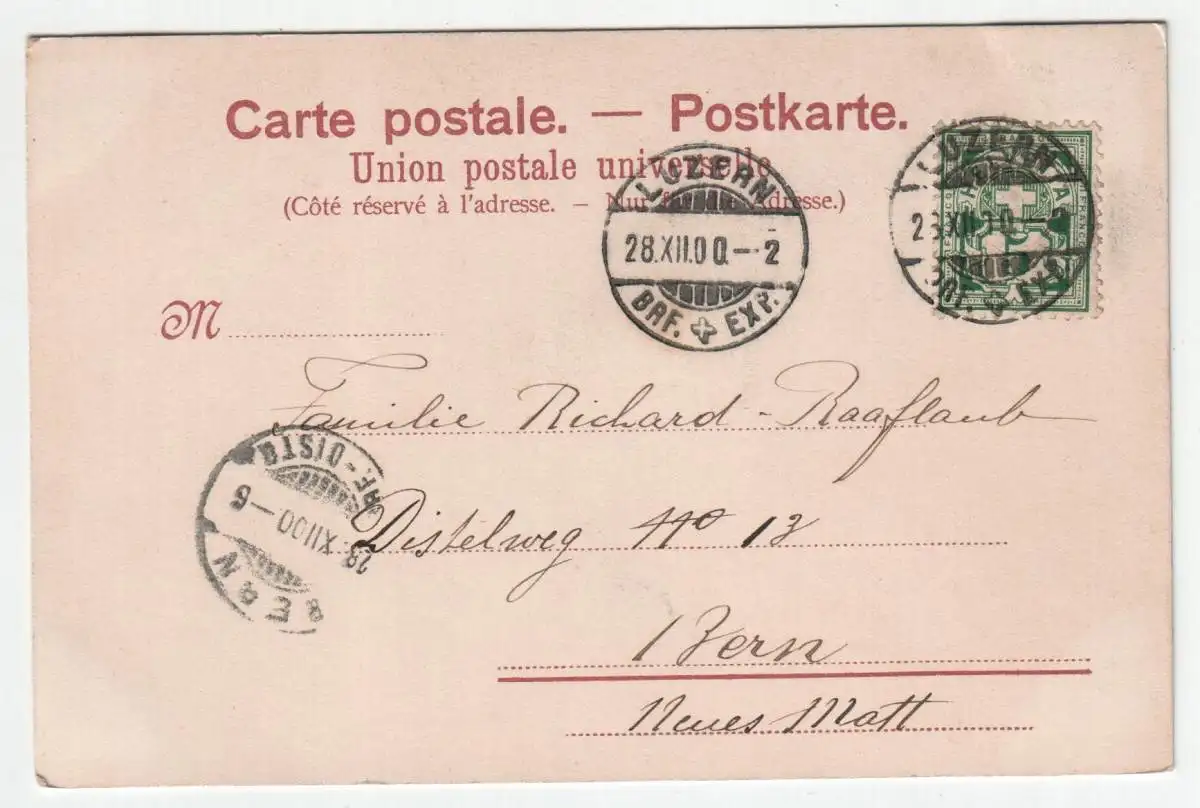 Carte postale. — Postkarte.
Union postale universelle
(Côté réservé à l'adresse. – Nur für die Adresse.)
LUZERN
28.XII.00.–2
BRF. EXP.
LUZERN
28.XII.00.–2
BRF. EXP.
FRANCO
M
Familie Richard-Raaflaub
Distelweg No 13
Bern
Neues Matt
BERN
28.XII.00–6
BRF.-DISTR